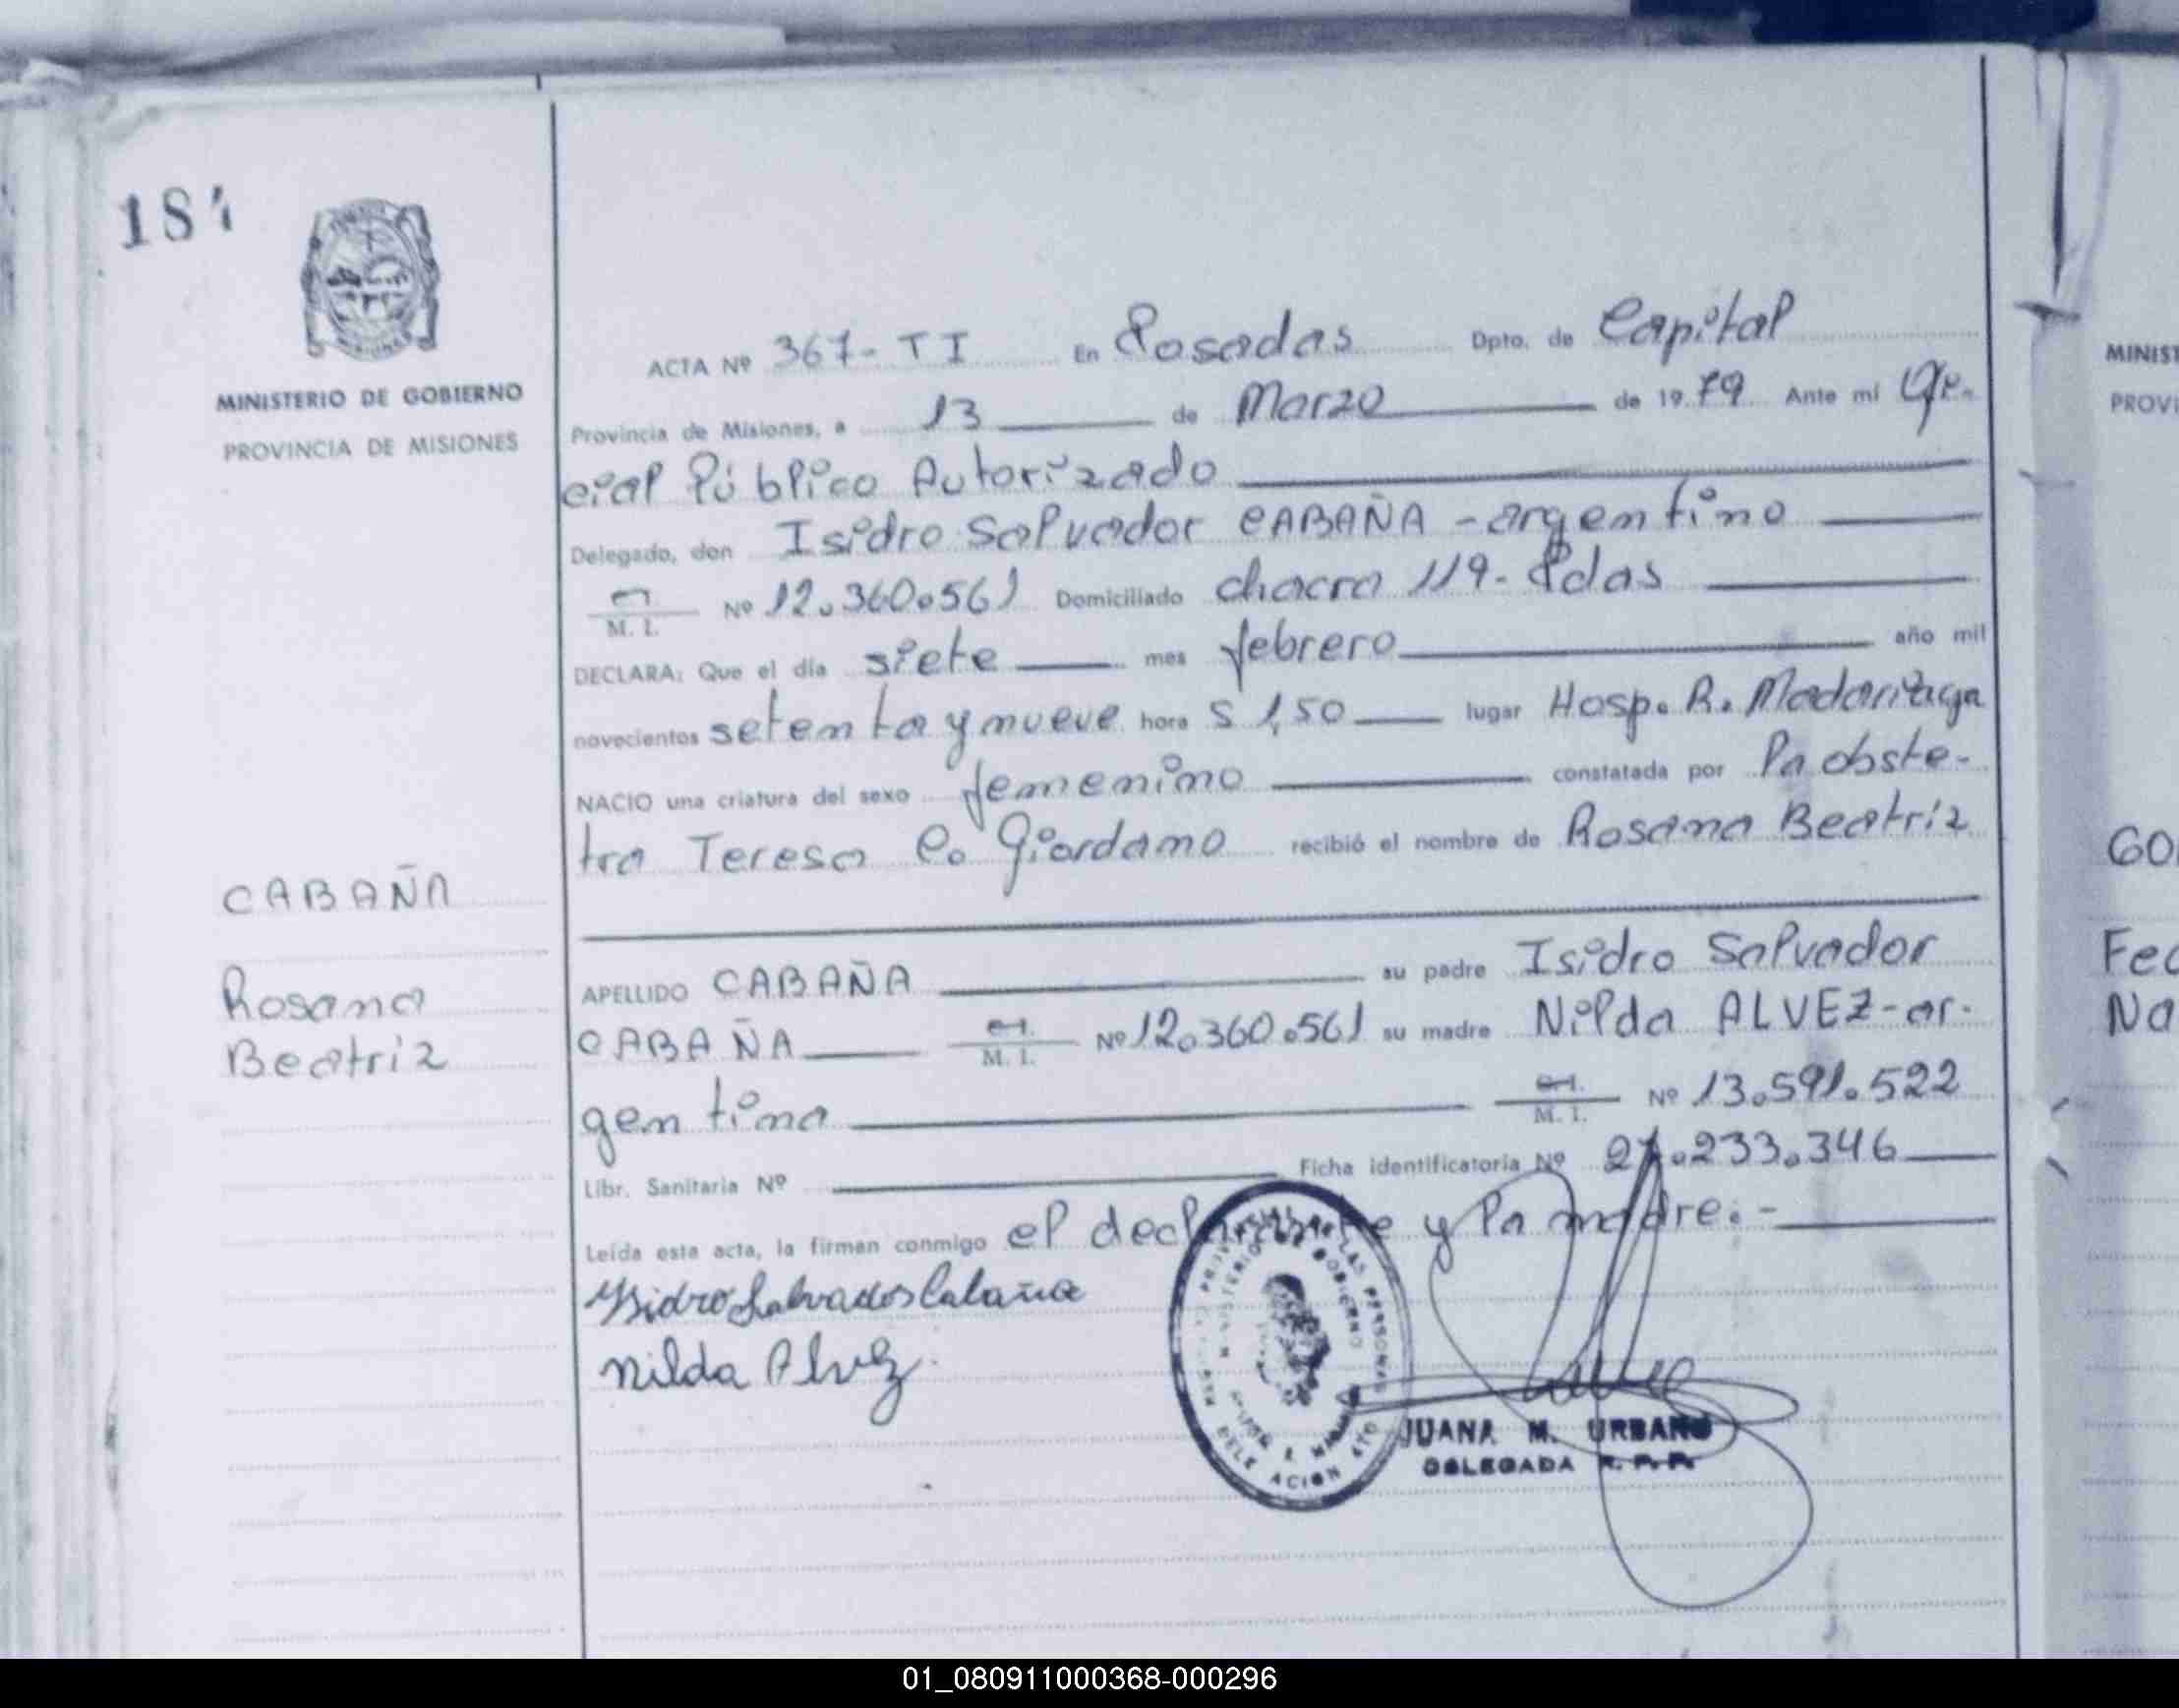 MINISTERIO DE GOBIERNO
PROVINCIA DE MISIONES
ACTA Nº 367- TI En Posadas Dpto. de Capital
Provincia de Misiones, a 13 de Marzo de 1979 Ante mí Ofi-
cial Público Autorizado
Delegado, don Isidro Salvador CABAÑA - argentino
C.I. M. I. Nº 12.360.561 Domiciliado chacra 119- Pdas
DECLARA: Que el día siete mes febrero año mil
novecientos setenta y nueve hora s 1,50 lugar Hosp. R. Madariaga
NACIO una criatura del sexo femenino constatada por la obste-
tra Teresa C. Giordano recibió el nombre de Rosana Beatriz
CABAÑA
Rosana
Beatriz
APELLIDO CABAÑA su padre Isidro Salvador
CABAÑA C.I. M. I. Nº 12.360.561 su madre Nilda ALVEZ-ar-
gentina C.I. M. I. Nº 13.591.522
Libr. Sanitaria Nº Ficha identificatoria Nº 27.233.346
Leída esta acta, la firman conmigo el declarante y la madre.-
Isidro Salvador Cabaña
Nilda Alvez
JUANA M. URBANO
DELEGADA R. P. P.
MINIST
PROVI
GO
Fec
Na
01_080911000368-000296